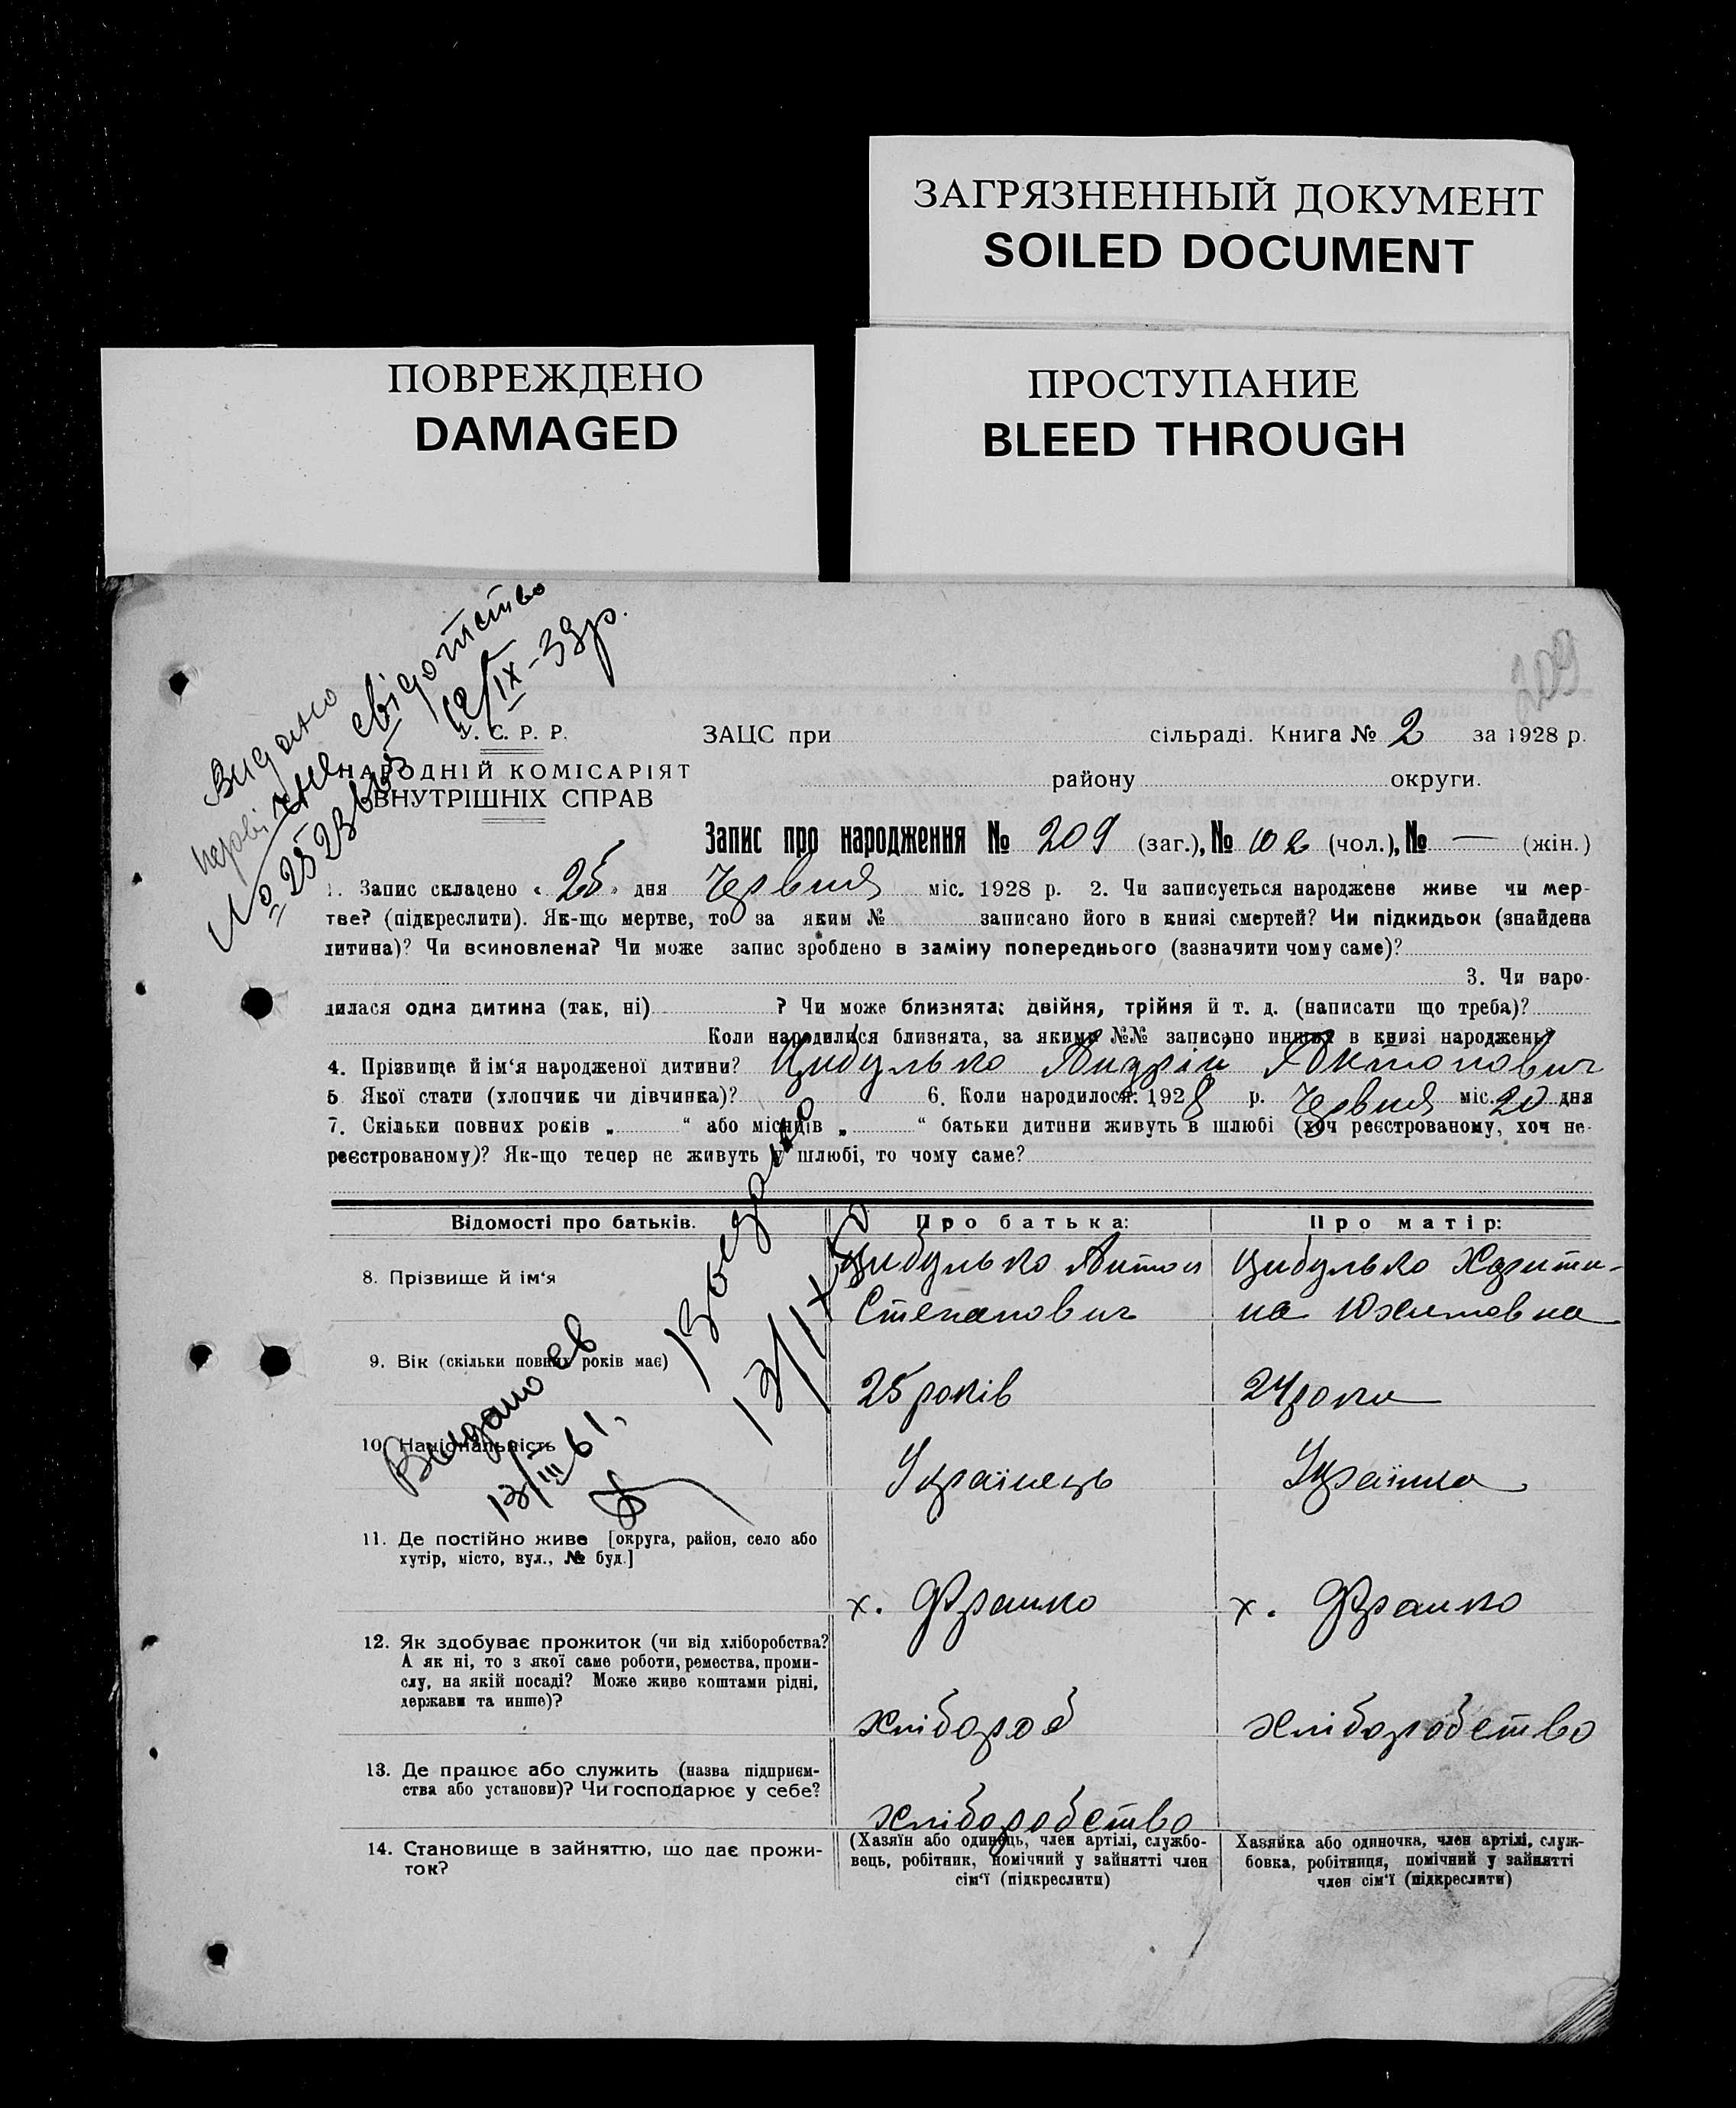 ЗАГРЯЗНЕННЫЙ ДОКУМЕНТ
SOILED DOCUMENT
ПОВРЕЖДЕНО
DAMAGED
ПРОСТУПАНИЕ
BLEED THROUGH
209
Видано
первісне свідотство
№ 2523 12/IX-39р.
У. С. Р. Р.
НАРОДНІЙ КОМІСАРІЯТ
ВНУТРІШНІХ СПРАВ
ЗАЦС при сільраді. Книга № 2 за 1928 р.
району округи.
Запис про народження № 209 (заг.), № 102 (чол.), № — (жін.)
1. Запис складено « 25 » дня Червня міс. 1928 р. 2. Чи записується народжене живе чи мер-
тве? (підкреслити). Як-що мертве, то за яким № записано його в книзі смертей? Чи підкидьок (знайдена
дитина)? Чи всиновлена? Чи може запис зроблено в заміну попереднього (зазначити чому саме)?
3. Чи наро-
дилася одна дитина (так, ні) ? Чи може близнята: двійня, трійня й т. д. (написати що треба)?
Коли народилися близнята, за якими №№ записано инших в книзі народжень?
4. Прізвище й ім'я народженої дитини? Цибулько Андрій Антонович
5 Якої стати (хлопчик чи дівчинка)? 6. Коли народилося: 1928 р. Червня міс. 20 дня
7. Скільки повних років „ “ або місяців „ “ батьки дитини живуть в шлюбі (хоч реєстрованому, хоч не-
реєстрованому)? Як-що тепер не живуть у шлюбі, то чому саме?
Відомості про батьків. Про батька: Про матір:
8. Прізвище й ім'я Цибулько Антон Цибулько Харити-
Степанович на Юхимовна
9. Вік (скільки повних років має) 25 років 24 роки
Выдано св
13/III 61.
10. Національність Українець Українка
11. Де постійно живе [округа, район, село або
хутір, місто, вул., № буд.]
х. Франко х. Франко
12. Як здобуває прожиток (чи від хліборобства?
А як ні, то з якої саме роботи, ремества, проми-
слу, на якій посаді? Може живе коштами рідні,
держави та инше)?
хлібороб хліборобство
13. Де працює або служить (назва підприєм-
ства або установи)? Чи господарює у себе?
хліборобство
14. Становище в зайняттю, що дає прожи-
ток?
(Хазяїн або одинець, член артілі, службо-
вець, робітник, помічний у зайнятті член
сім'ї (підкреслити)
Хазяйка або одиночка, член артілі, служ-
бовка, робітниця, помічний у зайнятті
член сім'ї (підкреслити)